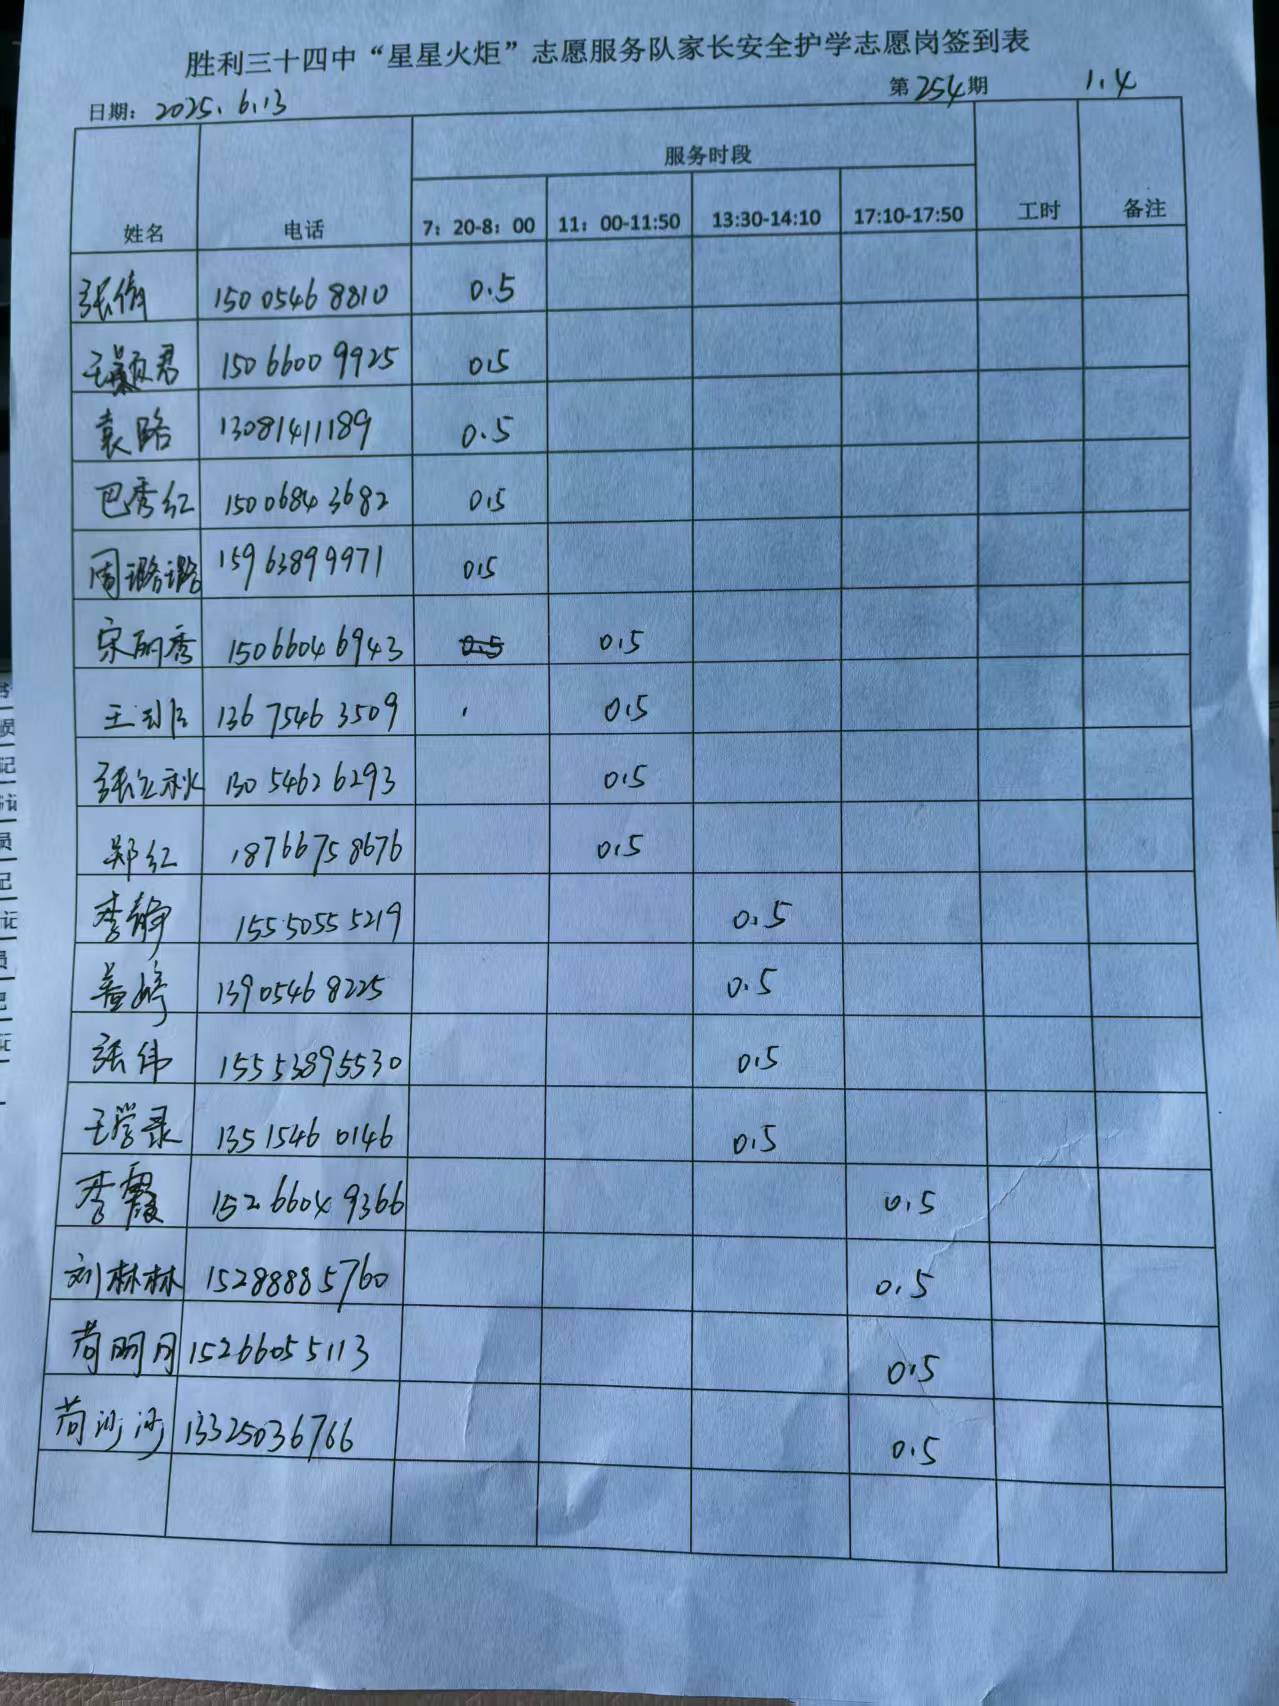 胜利三十四中“星星火炬”志愿服务队家长安全护学志愿岗签到表
日期：2025.6.13 第254期 1.4
服务时段
姓名 电话 7：20-8：00 11：00-11:50 13:30-14:10 17:10-17:50 工时 备注
张倩 15005468810 0.5
王颖君 15066009925 0.5
袁路 13081411189 0.5
巴秀红 15006843682 0.5
周璐璐 15963899971 0.5
宋丽秀 15066046943 0.5 0.5
王 13675463509 0.5
张立秋 13054626293 0.5
郑红 18766758676 0.5
李静 15550555219 0.5
董婷 13905468225 0.5
张伟 15553895530 0.5
王学录 13515460146 0.5
李霞 15266049366 0.5
刘林林 15288885760 0.5
苟明月 15266055113 0.5
苟沙沙 13325036766 0.5